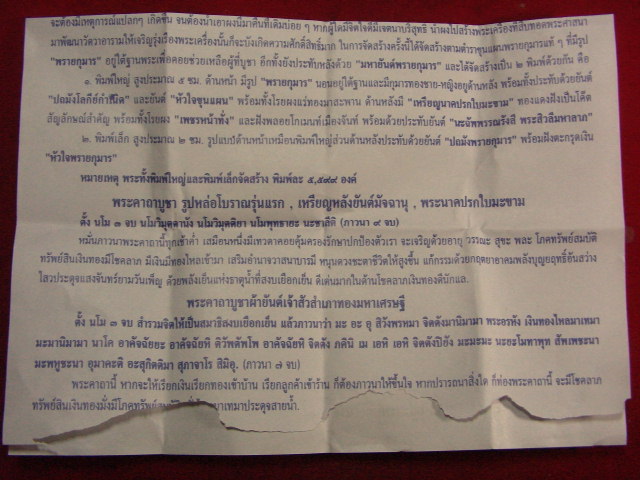 จะต้องมีเหตุการณ์แปลกๆ เกิดขึ้น จนต้องนำเอาผงนี้มาคืนที่เดิมบ่อย ๆ หากผู้ใดมีจิตใจดีมีเจตนาบริสุทธิ์ นำผงไปสร้างพระเครื่องที่สืบทอดพระศาสนา
มาพัฒนาวัดวาอารามให้เจริญรุ่งเรืองพระเครื่องนั้นก็จะบังเกิดความศักดิ์สิทธิ์มาก ในการจัดสร้างครั้งนี้ได้จัดสร้างตามตำราขุนแผนพรายกุมารแท้ ๆ ที่มีรูป
"พรายกุมาร" อยู่ใต้ฐานพระเพื่อคอยช่วยเหลือผู้ที่บูชา อีกทั้งยังประทับหลังด้วย "มหายันต์พรายกุมาร" และได้จัดสร้างเป็น ๒ พิมพ์ด้วยกัน คือ
๑. พิมพ์ใหญ่ สูงประมาณ ๕ ซม. ด้านหน้า มีรูป "พรายกุมาร" นอนอยู่ใต้ฐานและมีกุมารทองชาย-หญิงอยู่ด้านหลัง พร้อมทั้งประทับด้วยยันต์
"ปถมังโลกีย์กำเนิด" และยันต์ "หัวใจขุนแผน" พร้อมทั้งโรยผงแร่ทองมาละพาน ด้านหลังมี "เหรียญนาคปรกใบมะขาม" ทองแดงฝังเป็นโค๊ด
สัญลักษณ์สำคัญ พร้อมทั้งโรยผง "เพชรหน้าทั่ง" และฝังพลอยโกเมนท์เมืองจันท์ พร้อมด้วยประทับยันต์ "นะฉัพพรรณรังสี พระสิวลีมหาลาภ"
๒. พิมพ์เล็ก สูงประมาณ ๒ ซม. รูปแบบด้านหน้าเหมือนพิมพ์ใหญ่ส่วนด้านหลังประทับด้วยยันต์ "ปถมังพรายกุมาร" พร้อมฝังตะกรุดเงิน
"หัวใจพรายกุมาร"
หมายเหตุ พระทั้งพิมพ์ใหญ่และพิมพ์เล็กจัดสร้าง พิมพ์ละ ๕,๕๙๙ องค์
พระคาถาบูชา รูปหล่อโบราณรุ่นแรก , เหรียญหลังยันต์มัจฉานุ , พระนาคปรกใบมะขาม
ตั้ง นโม ๓ จบ นโมวิมุตตานัง นโมวิมุตติยา นโมพุทธายะ นะชาลีติ (ภาวนา ๙ จบ)
หมั่นภาวนาพระคาถานี้ทุกเช้าค่ำ เสมือนหนึ่งมีเทวดาคอยคุ้มครองรักษาปกป้องตัวเรา จะเจริญด้วยอายุ วรรณะ สุขะ พละ โภคทรัพย์สมบัติ
ทรัพย์สินเงินทองมีโชคลาภ มีเงินมีทองไหลเข้ามา เสริมอำนาจวาสนาบารมี หนุนดวงชะตาชีวิตให้สูงขึ้น แก้กรรมด้วยกฤตยาอาคมพลังบุญฤทธิ์อันสว่าง
ไสวประดุจแสงจันทร์ยามวันเพ็ญ ด้วยพลังเย็นแห่งธาตุน้ำที่สงบเยือกเย็น ดีเด่นมากในด้านโชคลาภเงินทองดีนักแล.
พระคาถาบูชาผ้ายันต์เจ้าสัวสำเภาทองมหาเศรษฐี
ตั้ง นโม ๓ จบ สำรวมจิตให้เป็นสมาธิสงบเยือกเย็น แล้วภาวนาว่า มะ อะ อุ สิวังพรหมา จิตตังมานิมามา พระอรหัง เงินทองไหลมาเทมา
มะมานิมามา นาโค อาคัจฉัยยะ อาคัจฉัยหิ
มะพหูชะนา อุมาคะติ
พระคาถานี้ หากจะให้เรียกเงินเรียกทองเข้าบ้าน เรียกลูกค้าเข้าร้าน ก็ต้องภาวนาให้ขึ้นใจ หากปรารถนาสิ่งใด ก็ท่องพระคาถานี้ จะมีโชคลาภ
ทรัพย์สินเงินทองมั่งมีโภคทรัพย์ เทมาประดุจสายน้ำ.